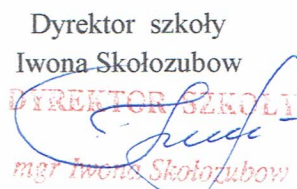 Dyrektor szkoły
Iwona Skołozubow
DYREKTOR SZKOŁY
mgr Iwona Skołozubow